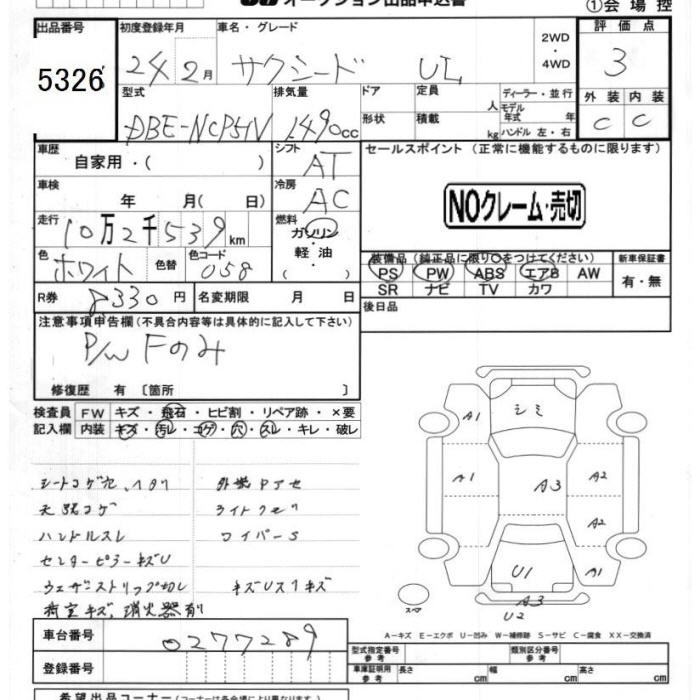 オークション出品申込書
①会場控
出品番号 初度登録年月 車名・グレード 2WD・4WD 評価点
5326 24 2月 サクシード UL 3
型式 排気量 ドア 定員 人 ディーラー・並行 外装 内装
DBE-NCP51V 1490cc 形状 積載 kg モデル年式 年式 ハンドル 左・右 C C
車歴 シフト セールスポイント (正常に機能するものに限ります)
自家用・( ) AT
車検 冷房
年 月( 日) AC NOクレーム・売切
走行 燃料
10万2千539km ガソリン・軽油・( )
色 色替 色コード 装備品(純正品に限り○をつけてください) 新車保証書
ホワイト 058 PS PW ABS エアB AW 有・無
SR ナビ TV カワ
R券 8330円 名変期限 月 日 後日品
注意事項申告欄(不具合内容等は具体的に記入して下さい)
P/W Fのみ
修復歴 有 〔箇所 〕
検査員 FW キズ・飛石・ヒビ割・リペア跡・×要
記入欄 内装 キズ・汚レ・コゲ・穴・スレ・キレ・破レ
シートコゲ穴、
天張コゲ
ライトクモリ
ハンドルスレ ワイパーS
センターピラーキズU
ウェザストリップ切レ
荷室キズ、消火器有
A1 シミ
A1 A3 A2
A2
U1 A1
A3
スペア U2
A-キズ E-エクボ U-凹み W-補修跡 S-サビ C-腐食 XX-交換済
車台番号 0277289
型式指定番号 参考 類別区分番号 参考
登録番号 車庫証明用 参考 長さ cm 幅 cm 高さ cm
希望出品コーナー(コーナーは各会場で異なります)